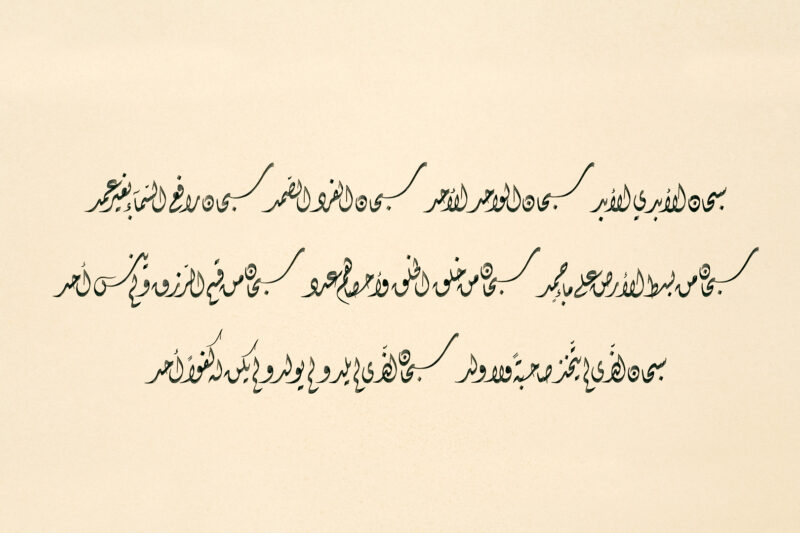 سبحان الأبدي الأبد سبحان الواحد الأحد سبحان الفرد الصّمد سبحان رافع السّمآء بغير عمد
سبحان من بسط الأرض على مآء جمد سبحان من خلق الخلق وأحصاهم عدد سبحان من قسم الرّزق ولم ينس أحد
سبحان الّذي لم يتّخذ صاحبةً ولا ولد سبحان الّذي لم يلد ولم يولد ولم يكن له كفواً أحد